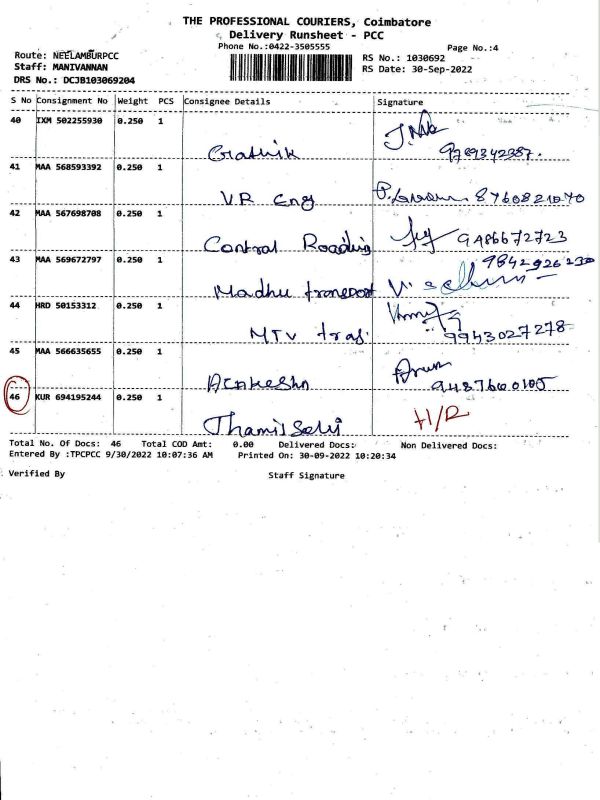 THE PROFESSIONAL COURIERS, Coimbatore
Delivery Runsheet - PCC
Phone No.:0422-3505555
Page No.:4
Route: NEELAMBURPCC
RS No.: 1030692
Staff: MANIVANNAN
RS Date: 30-Sep-2022
DRS No.: DCJB103069204
S No Consignment No Weight PCS Consignee Details Signature
40 IXM 502255930 0.250 1
41 MAA 568593392 0.250 1
VR Eng
42 MAA 567698708 0.250 1
9486672723
43 MAA 569672797 0.250 1
9842926230
Madhu transport
44 HRD 50153312 0.250 1
MTV
9943027278
45 MAA 566635655 0.250 1
46 KUR 694195244 0.250 1
Total No. Of Docs: 46 Total COD Amt: 0.00 Delivered Docs: Non Delivered Docs:
Entered By :TPCPCC 9/30/2022 10:07:36 AM Printed On: 30-09-2022 10:20:34
Verified By Staff Signature